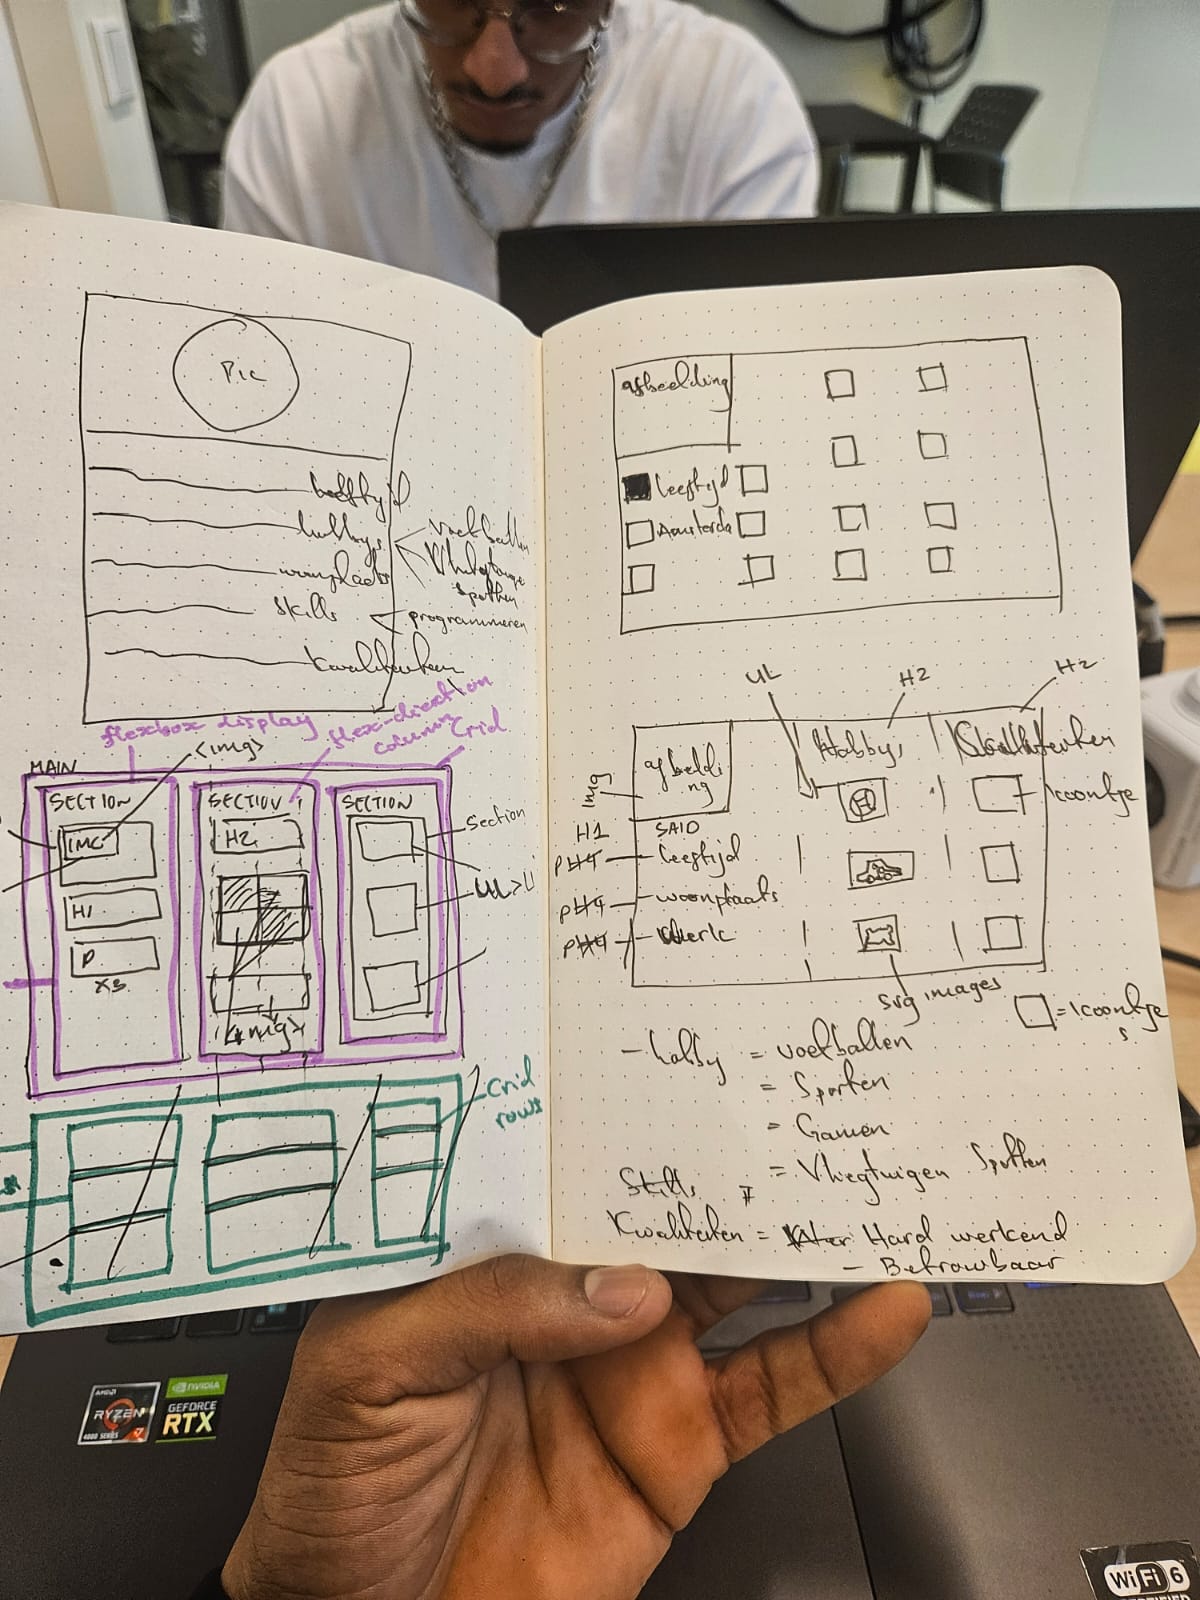 Pic
leeftyd
hobbys
voetballen
woonplaats
skills
programmeren
Kwaliteiten
flexbox display
flex-direction
column
Grid
<img>
MAIN
SECTION
IMG
H1
P
X3
SECTION
H2
<img>
SECTION
Section
UL>Li
Grid
rows
afbeelding
leeftyd
Amsterda
UL
H2
H2
Img
afbeeldi
ng
Hobbys
Icoontje
H1
SAID
leeftijd
woonplaats
Werk
svg images
= Icoontje
s
- hobby = voetballen
= Sporten
= Gamen
= Vliegtuigen Spotten
Skills
Kwaliteiten = Hard werkend
- Betrouwbaar
AMD
RYZEN 7
4000 SERIES
NVIDIA
GEFORCE
RTX
WiFi 6